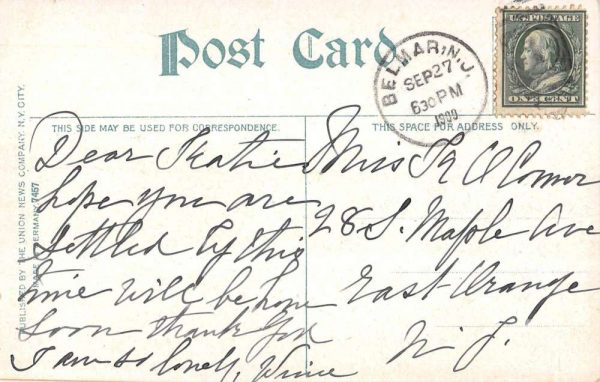 Post Card
BELMAR, N.J.
SEP 27
630 PM
1909
U.S. POSTAGE
ONE CENT
THIS SIDE MAY BE USED FOR CORRESPONDENCE.
THIS SPACE FOR ADDRESS ONLY.
PUBLISHED BY THE UNION NEWS COMPANY, N.Y. CITY.
MADE IN GERMANY 7457
Dear Katie
hope you are
settled by this
time will be home
soon thank God
I am so lonely, Winnie
Miss K O Connor
28 S. Maple Ave
East Orange
N. J.